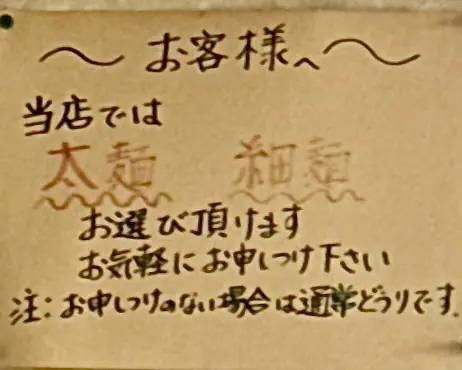 〜お客様へ〜
当店では
太麺 細麺
お選び頂けます
お気軽にお申しつけ下さい
注:お申しつけのない場合は通常どうりです.